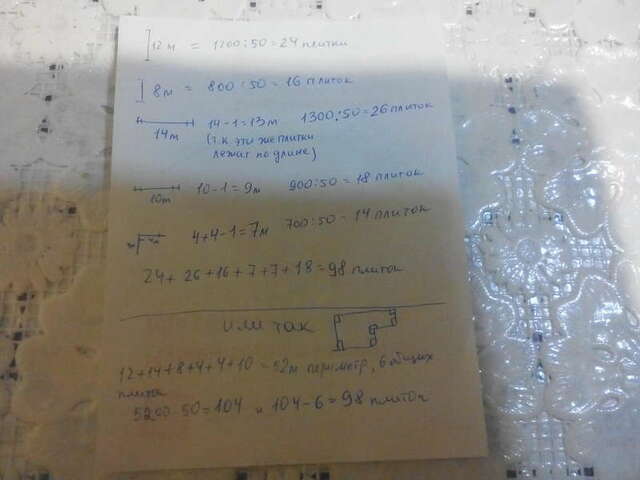 12 м = 1200:50 = 24 плитки
8м = 800:50 = 16 плиток
14-1=13м 1300:50=26 плиток
14m
(т.к. эти же плитки
лежат по длине)
10-1=9м 900:50=18 плиток
10m
4+4-1=7м 700:50=14 плиток
24+26+16+7+7+18=98 плиток
или так
12+14+8+4+4+10=52м периметр, 6 общих
плиток
5200:50=104 и 104-6=98 плиток